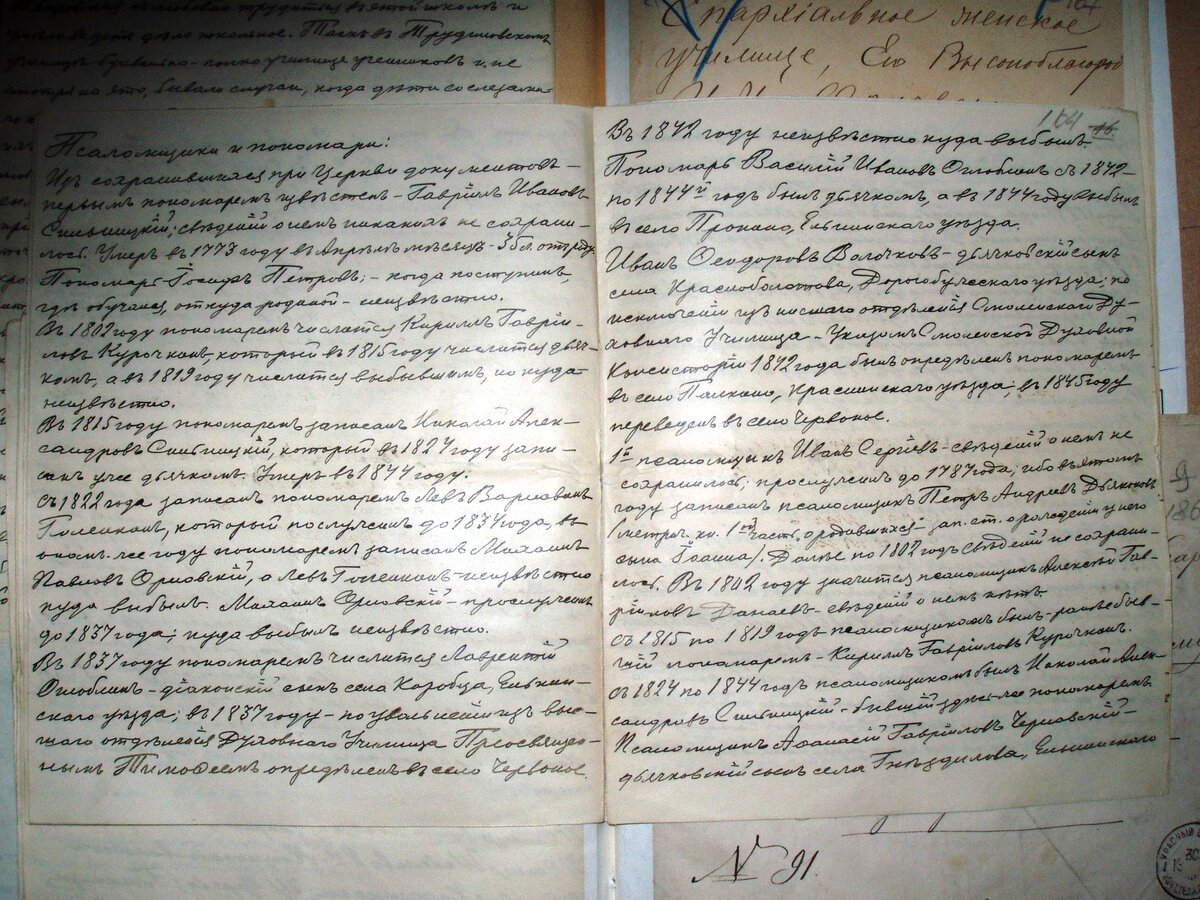 училищѣ
смотря на это, бывали случаи, когда дѣти со слезами
Епархіальное женское
училище, Его Высокоблагород
Псаломщики и пономари:
Изъ сохранившихся при Церкви документовъ –
первымъ пономаремъ извѣстенъ – Гавріилъ Ивановъ
Сильницкій; свѣдѣній о немъ никакихъ не сохрани-
лось. Умеръ въ 1773 году въ Апрѣлѣ мѣсяцѣ – 35 л. отъ роду.
Пономарь Іосифъ Петровъ; – когда поступилъ,
гдѣ обучался, откуда родной – неизвѣстно.
Въ 1802 году пономаремъ числится Кириллъ Гаврі-
ловъ Курочкинъ, который въ 1815 году числится дьяч-
комъ, а въ 1819 году числится выбывшимъ, но куда –
неизвѣстно.
Въ 1815 году пономаремъ записанъ Николай Алек-
сандровъ Сильницкій, который въ 1824 году запи-
санъ уже дьячкомъ. Умеръ въ 1844 году.
Съ 1822 года записанъ пономаремъ Левъ
который послужилъ до 1834 года, въ
ономъ-же году пономаремъ записанъ Михаилъ
Павловъ Орловскій, а Левъ неизвѣстно
куда выбылъ. Михаилъ Орловскій – прослужилъ
до 1837 года; куда выбылъ неизвѣстно.
Въ 1837 году пономаремъ числится Лаврентій
Оглоблинъ – діаконскій сынъ села Коробца, Ельнин-
скаго уѣзда; въ 1837 году – по увольненіи изъ выс-
шаго отдѣленія Духовнаго Училища Преосвящен-
нымъ Тимоѳеемъ опредѣленъ въ село Червоное.
164 16.
Въ 1842 году неизвѣстно куда выбылъ.
Пономарь Василій Ивановъ Оглоблинъ съ 1842 –
по 1844й годъ былъ дьячкомъ, а въ 1844 году выбылъ
въ село Пронино, Ельнинскаго уѣзда.
Иванъ Ѳеодоровъ Волочковъ – дьячковскій сынъ
села Красноболотова, Дорогобужскаго уѣзда; по
исключеніи изъ низшаго отдѣленія Смоленскаго Ду-
ховнаго Училища – Указомъ Смоленской Духовной
Консисторіи 1842 года былъ опредѣленъ пономаремъ
въ село Палкино, Краснинскаго уѣзда; въ 1845 году
переведенъ въ село Червоное.
1й псаломщикъ Иванъ Сергіевъ – свѣдѣній о немъ не
сохранилось; прослужилъ до 1787 года; ибо въ этомъ
году записанъ псаломщикъ Петръ Андреевъ Дьяконовъ
(метрич. кн. 1ая часть, о родившихся – зап. ст. о рожденіи у него
сына Іоанна). Далѣе по 1802 годъ свѣдѣній не сохрани-
лось. Въ 1802 году значится псаломщикъ Алексѣй Гав-
ріиловъ Данаевъ – свѣдѣній о немъ нѣтъ.
Съ 1815 по 1819 годъ псаломщикомъ былъ – ранѣе быв-
шій пономаремъ – Кириллъ Гавріиловъ Курочкинъ.
Съ 1824 по 1844 годъ псаломщикомъ былъ Николай Алек-
сандровъ Сильницкій – бывшій здѣсь-же пономаремъ.
Псаломщикъ Аѳанасій Гавріиловъ Чернавскій –
дьячковскій сынъ села Гнѣздилова, Ельнинскаго
№ 91.